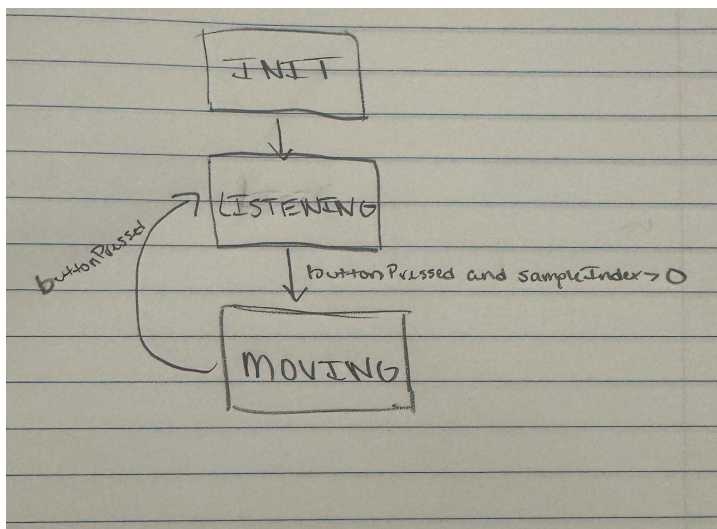 INIT
LISTENING
buttonPressed
buttonPressed and sampleIndex > 0
MOVING